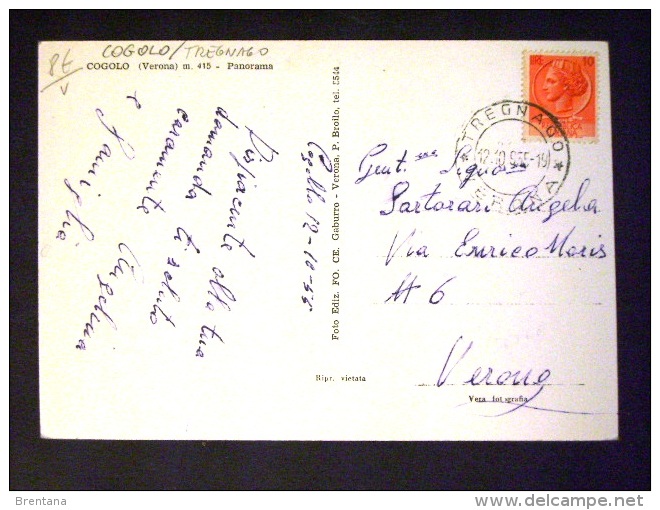 PE
COGOLO/TREGNAGO
COGOLO (Verona) m. 415 - Panorama
Cogollo 12-10-55
alla tua
domanda ti saluto
caramente
e famiglia
Angelina
Foto Ediz. FO. CE. Gaburro - Verona, P. Brollo, tel. 5544
LIRE 10
TREGNAGO
12.10.955-19
VERONA
Gent.ma Signora
Sartorari Angelia
Via Enrico Noris
N 6
Verona
Ripr. vietata
Vera fotografia
Brentana
delcampe.net